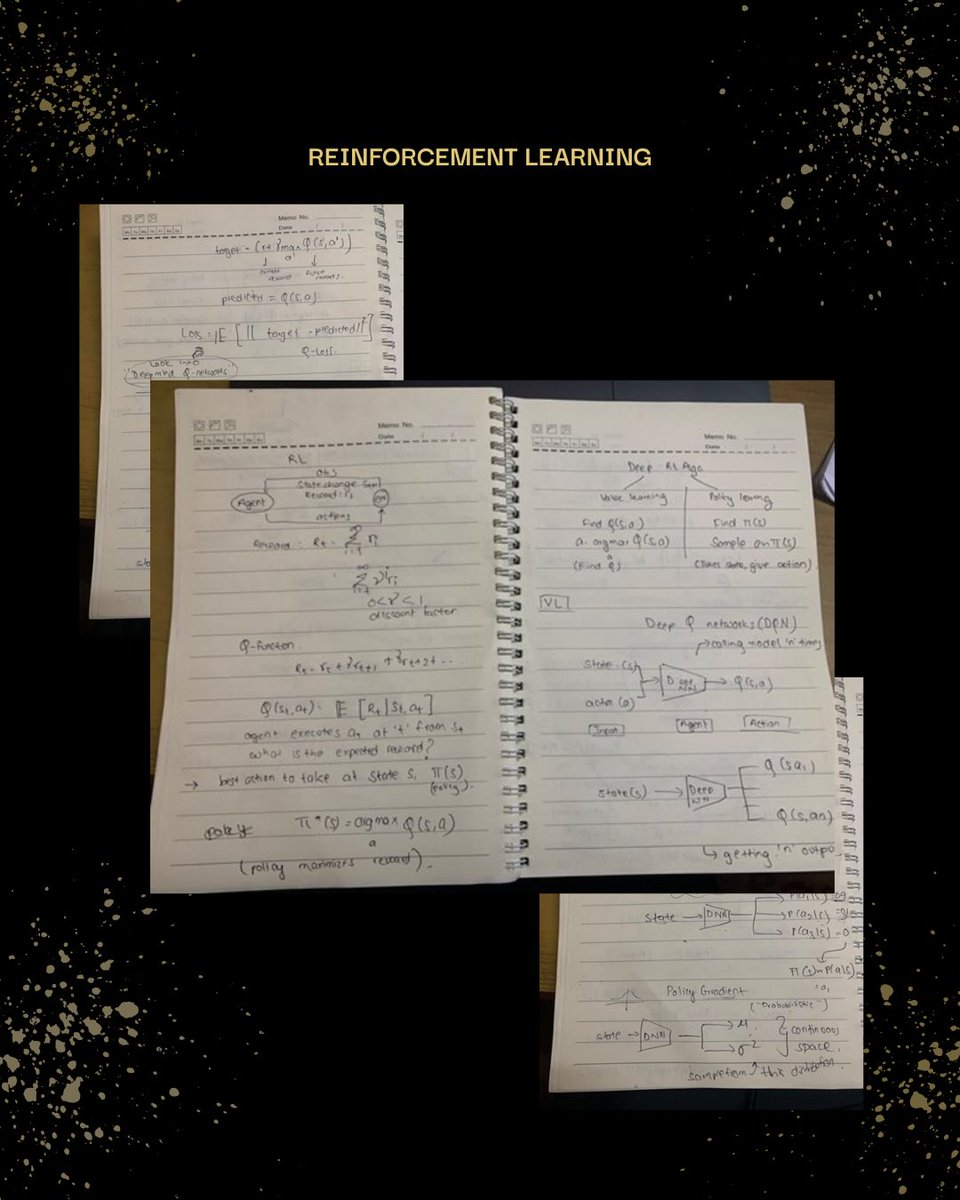 REINFORCEMENT LEARNING
Memo No.
Date
target = (r + γ max Q(s', a'))
a'
current reward
future rewards
predicted = Q(s,a)
Loss = E [|| target - predicted ||²]
Q-Loss.
Look into
"Deepmind Q-networks"
Memo No.
Date
RL
obs
State change: St+1
Reward: ri
Agent
actions
Reward: Rt =
∞
Σ ri
i=t
∞
Σ γ^i ri
i=t
0<γ<1
discount factor
Q-function.
Rt = rt + γrt+1 + γ²rt+2 + ...
Q(st, at) = E [Rt | st, at]
agent executes at at 't' from st
what is the expected reward?
→ best action to take at state s, π(s)
(policy).
policy π*(s) = argmax Q(s,a)
a
(policy maximizes reward).
Memo No.
Date
Deep RL Algo
Value learning
Policy learning
Find Q(s,a)
Find π(s)
a = argmax Q(s,a)
Sample on π(s)
a
(Find Q)
(Takes state, give action)
VL
Deep Q networks (DQN)
→ calling model 'n' times
state (s)
Deep NN
→ Q(s,a)
action (a)
Input
Agent
Action
Q(s,a1)
state(s) → Deep NN
Q(s,an)
↳ getting 'n' outpu
state → DNN
P(a2|s)
P(a3|s) = 0
π(s) ~ P(a|s)
Policy Gradient
("Probabilistic")
state → DNN
→ μ
→ σ²
continuous
space.
sample from this distribution